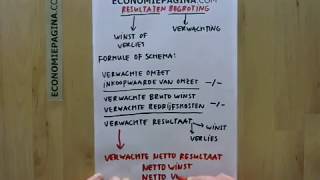 ECONOMIEPAGINA.COM
RESULTATEN BEGROTING
WINST OF VERLIES
VERWACHTING
FORMULE OF SCHEMA:
VERWACHTE OMZET
INKOOPWAARDE VAN OMZET -/-
VERWACHTE BRUTO WINST
VERWACHTE BEDRIJFSKOSTEN -/-
VERWACHTE RESULTAAT
WINST
VERLIES
VERWACHTE NETTO RESULTAAT
NETTO WINST
NETTO V
ECONOMIEPAGINA.COM